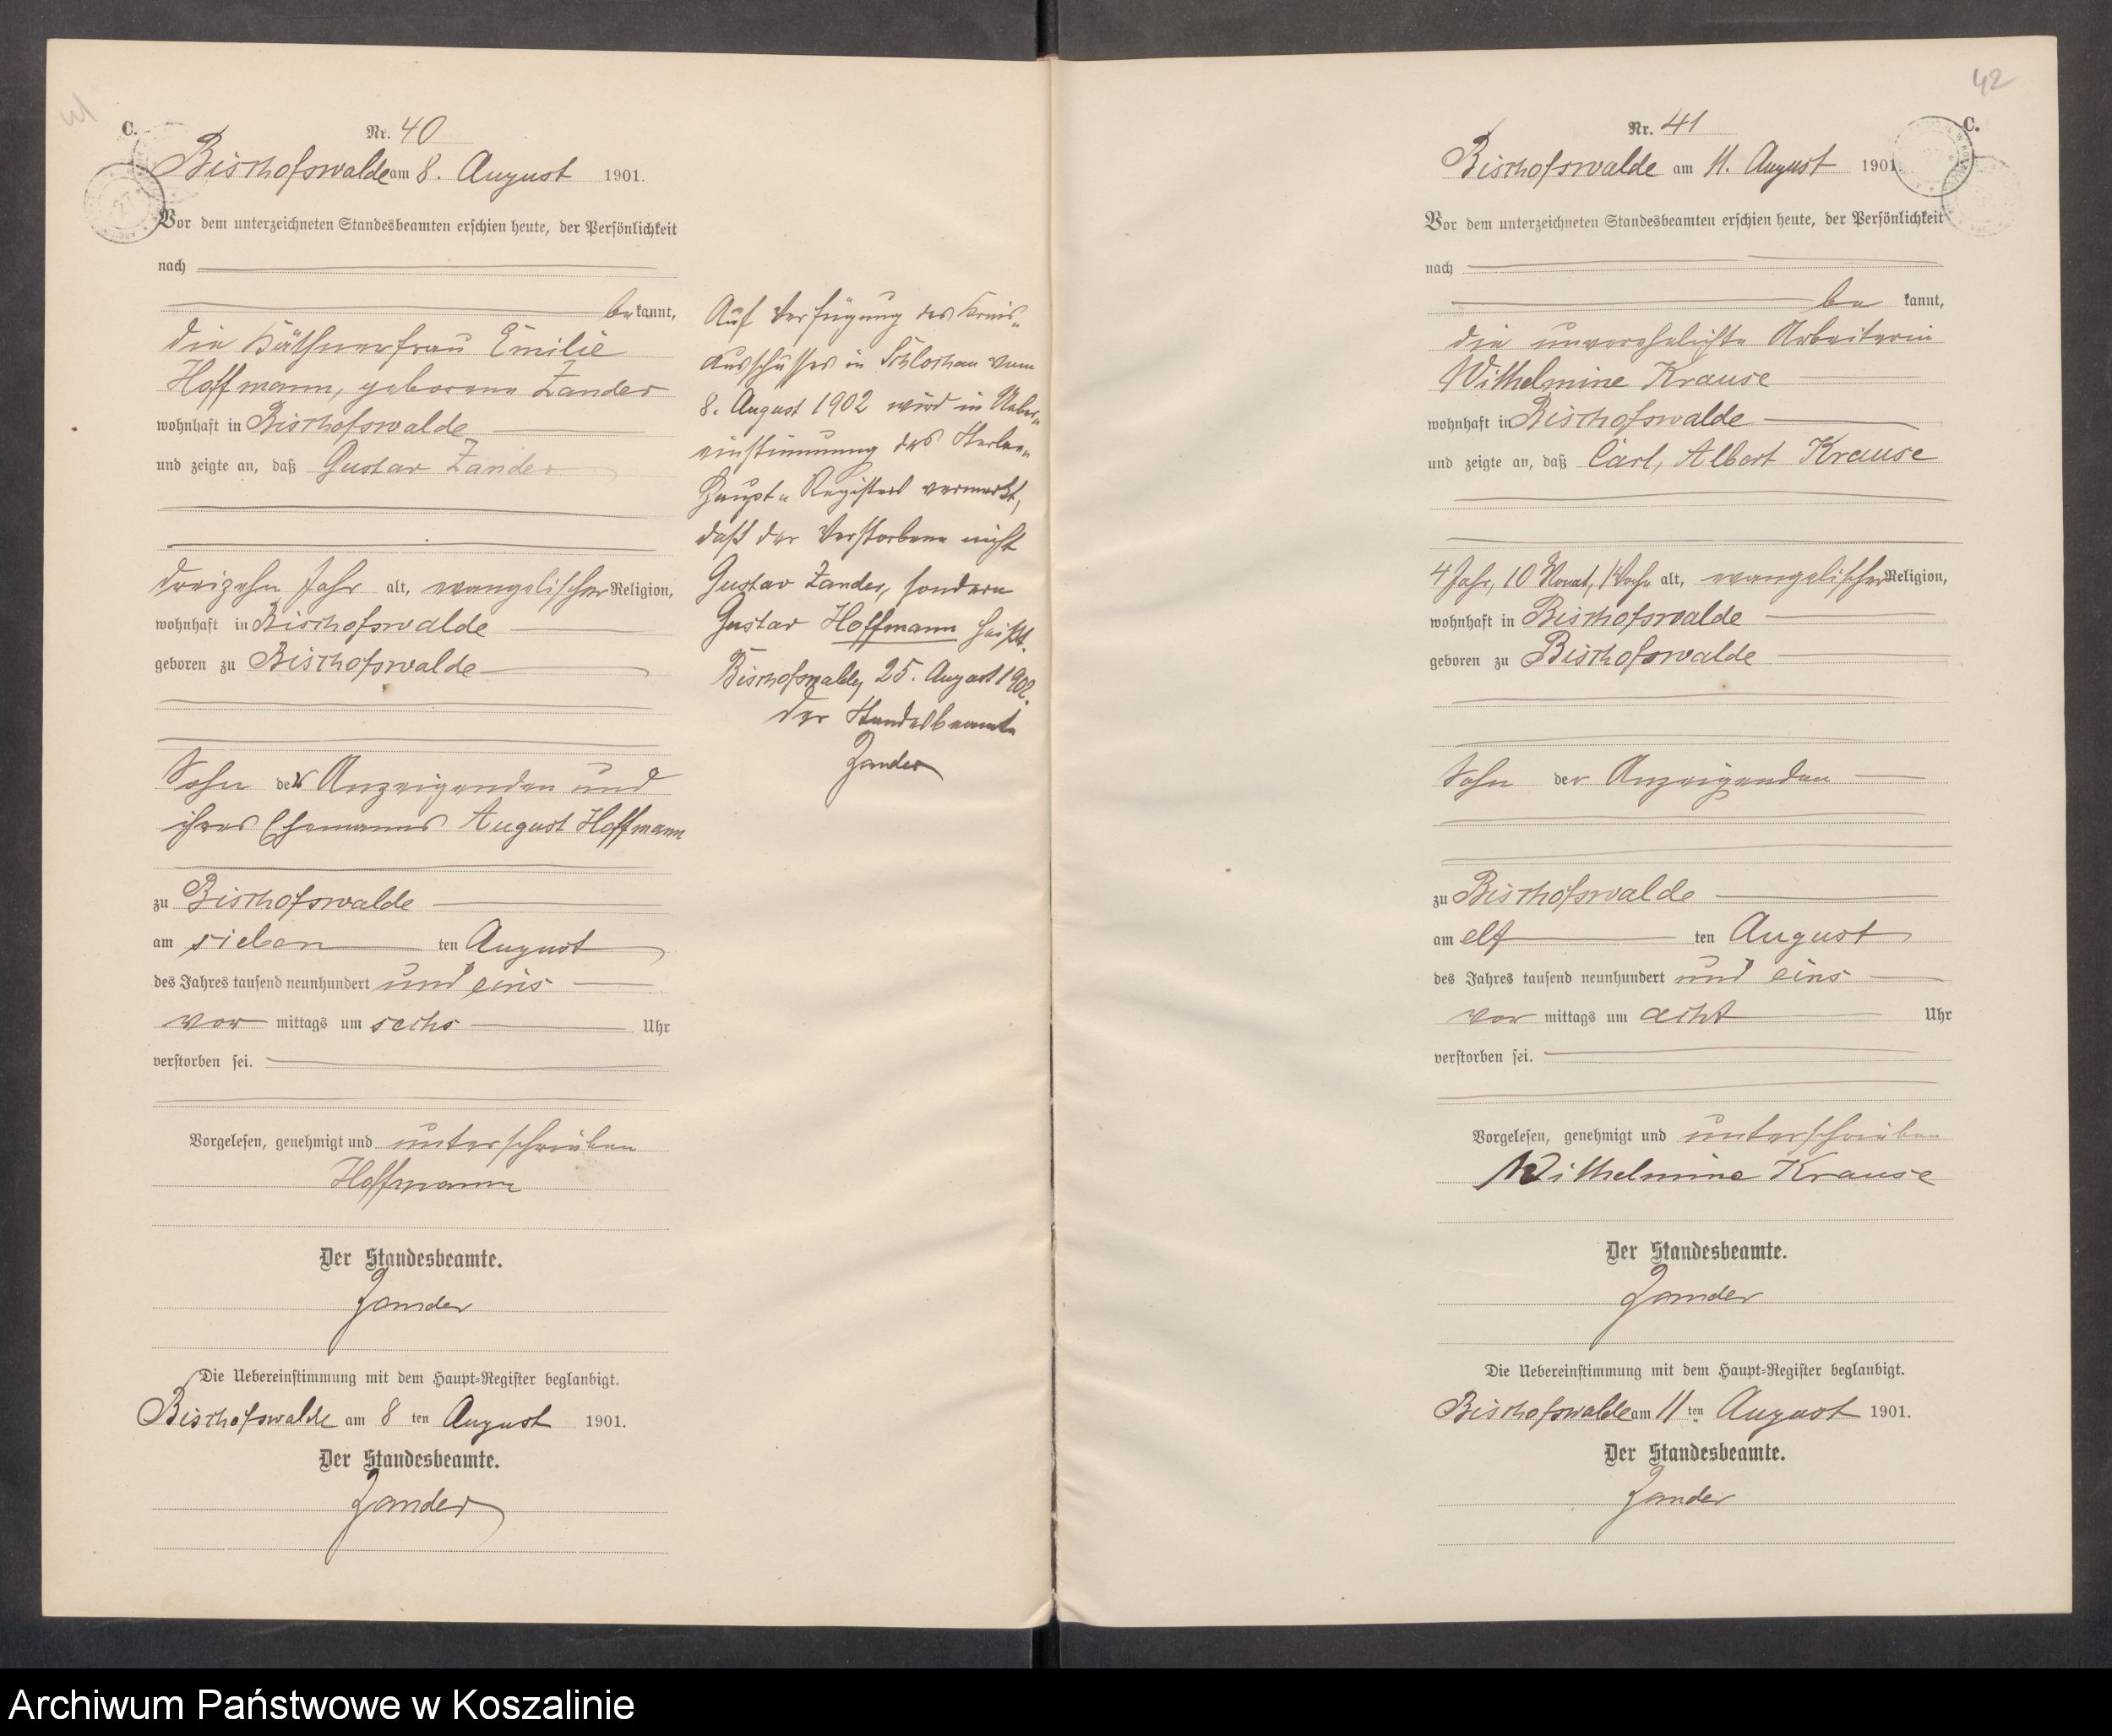 C.
Nr. 40
Bischofswalde am 8. August 1901.
Vor dem unterzeichneten Standesbeamten erschien heute, der Persönlichkeit
nach
be kannt,
die Käthnerfrau Emilie
Hoffmann, geborene Zander
wohnhaft in Bischofswalde
und zeigte an, daß Gustav Zander
dreizehn Jahr alt, evangelischer Religion,
wohnhaft in Bischofswalde
geboren zu Bischofswalde
Sohn der Anzeigenden und
ihres Ehemanns August Hoffmann
zu Bischofswalde
am sieben ten August
des Jahres tausend neunhundert und eins
vor mittags um sechs Uhr
verstorben sei.
Vorgelesen, genehmigt und unterschrieben
Hoffmann
Der Standesbeamte.
Zander
Die Uebereinstimmung mit dem Haupt-Register beglaubigt.
Bischofswalde am 8 ten August 1901.
Der Standesbeamte.
Zander
Auf Verfügung des Kreis-
Ausschusses in Schlochau vom
8. August 1902 wird in Ueber-
einstimmung des Sterbe-
Haupt-Registers vermerkt,
daß der Verstorbene nicht
Gustav Zander, sondern
Gustav Hoffmann heißt.
Bischofswalde, 25. August 1902.
Der Standesbeamte
Zander
42
Nr. 41
C.
Bischofswalde am 11. August 1901.
Vor dem unterzeichneten Standesbeamten erschien heute, der Persönlichkeit
nach
be kannt,
die unverehelichte Arbeiterin
Wilhelmine Krause
wohnhaft in Bischofswalde
und zeigte an, daß Carl, Albert Krause
4 Jahr, 10 Monat, 1 Woche alt, evangelischer Religion,
wohnhaft in Bischofswalde
geboren zu Bischofswalde
Sohn der Anzeigenden
zu Bischofswalde
am elf ten August
des Jahres tausend neunhundert und eins
vor mittags um acht Uhr
verstorben sei.
Vorgelesen, genehmigt und unterschrieben
Wilhelmine Krause
Der Standesbeamte.
Zander
Die Uebereinstimmung mit dem Haupt-Register beglaubigt.
Bischofswalde am 11 ten August 1901.
Der Standesbeamte.
Zander
Archiwum Państwowe w Koszalinie